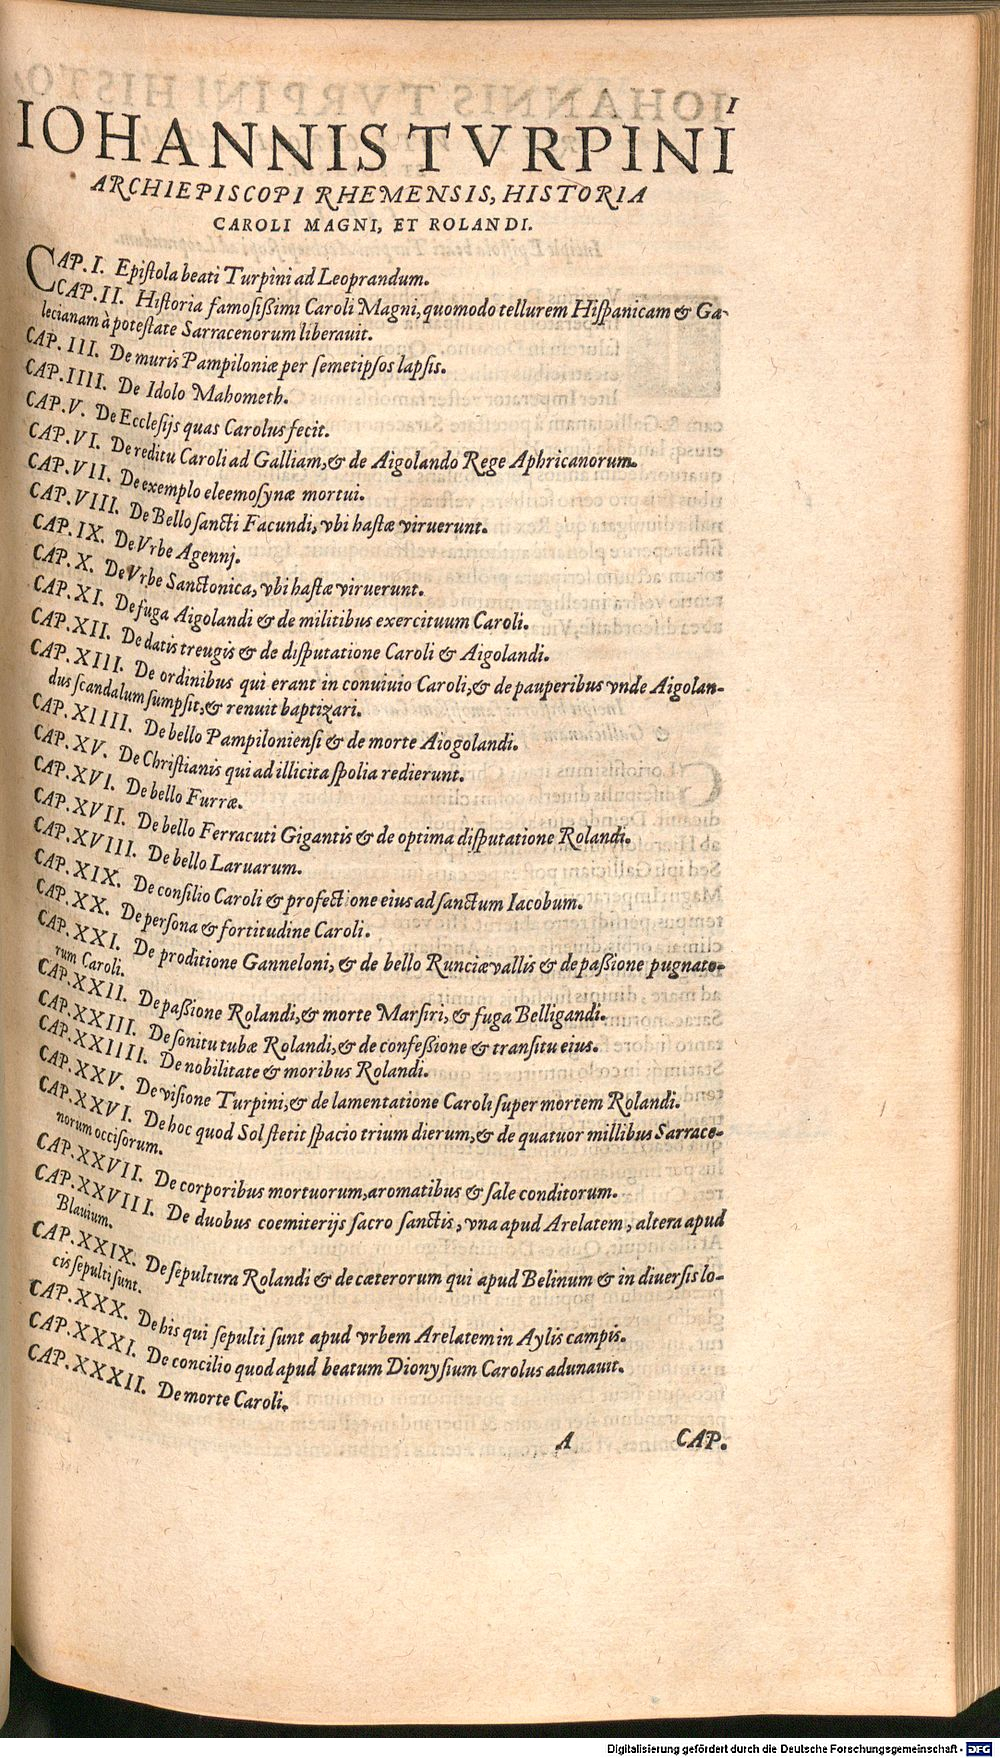 1
IOHANNIS TVRPINI
ARCHIEPISCOPI RHEMENSIS, HISTORIA
CAROLI MAGNI, ET ROLANDI.
CAP. I. Epiſtola beati Turpini ad Leoprandum.
CAP. II. Hiſtoria famoſißimi Caroli Magni, quomodo tellurem Hiſpanicam & Ga-
lecianam à poteſtate Sarracenorum liberauit.
CAP. III. De muris Pampiloniæ per ſemetipſos lapſis.
CAP. IIII. De Idolo Mahometh.
CAP. V. De Eccleſijs quas Carolus fecit.
CAP. VI. De reditu Caroli ad Galliam, & de Aigolando Rege Aphricanorum.
CAP. VII. De exemplo eleemoſynæ mortui.
CAP. VIII. De Bello ſancti Facundi, vbi haſtæ viruerunt.
CAP. IX. De Vrbe Agennj.
CAP. X. De Vrbe Sanctonica, vbi haſtæ viruerunt.
CAP. XI. De fuga Aigolandi & de militibus exercituum Caroli.
CAP. XII. De datis treugis & de diſputatione Caroli & Aigolandi.
CAP. XIII. De ordinibus qui erant in conuiuio Caroli, & de pauperibus vnde Aigolan-
dus ſcandalum ſumpſit, & renuit baptizari.
CAP. XIIII. De bello Pampilonienſi & de morte Aiogolandi.
CAP. XV. De Chriſtianis qui ad illicita ſpolia redierunt.
CAP. XVI. De bello Furræ.
CAP. XVII. De bello Ferracuti Gigantis & de optima diſputatione Rolandi.
CAP. XVIII. De bello Laruarum.
CAP. XIX. De conſilio Caroli & profectione eius ad ſanctum Iacobum.
CAP. XX. De perſona & fortitudine Caroli.
CAP. XXI. De proditione Ganneloni, & de bello Runciævallis & de paßione pugnato-
rum Caroli.
CAP. XXII. De paßione Rolandi, & morte Marſiri, & fuga Belligandi.
CAP. XXIII. De ſonitu tubæ Rolandi, & de confeßione & tranſitu eius.
CAP. XXIIII. De nobilitate & moribus Rolandi.
CAP. XXV. De viſione Turpini, & de lamentatione Caroli ſuper mortem Rolandi.
CAP. XXVI. De hoc quod Sol ſtetit ſpacio trium dierum, & de quatuor millibus Sarrace-
norum occiſorum.
CAP. XXVII. De corporibus mortuorum, aromatibus & ſale conditorum.
CAP. XXVIII. De duobus coemiterijs ſacro ſanctis, vna apud Arelatem, altera apud
Blauium.
CAP. XXIX. De ſepultura Rolandi & de cæterorum qui apud Belinum & in diuerſis lo-
cis ſepulti ſunt.
CAP. XXX. De his qui ſepulti ſunt apud vrbem Arelatem in Aylis campis.
CAP. XXXI. De concilio quod apud beatum Dionyſium Carolus adunauit.
CAP. XXXII. De morte Caroli.
A CAP.
Digitalisierung gefördert durch die Deutsche Forschungsgemeinschaft - DFG